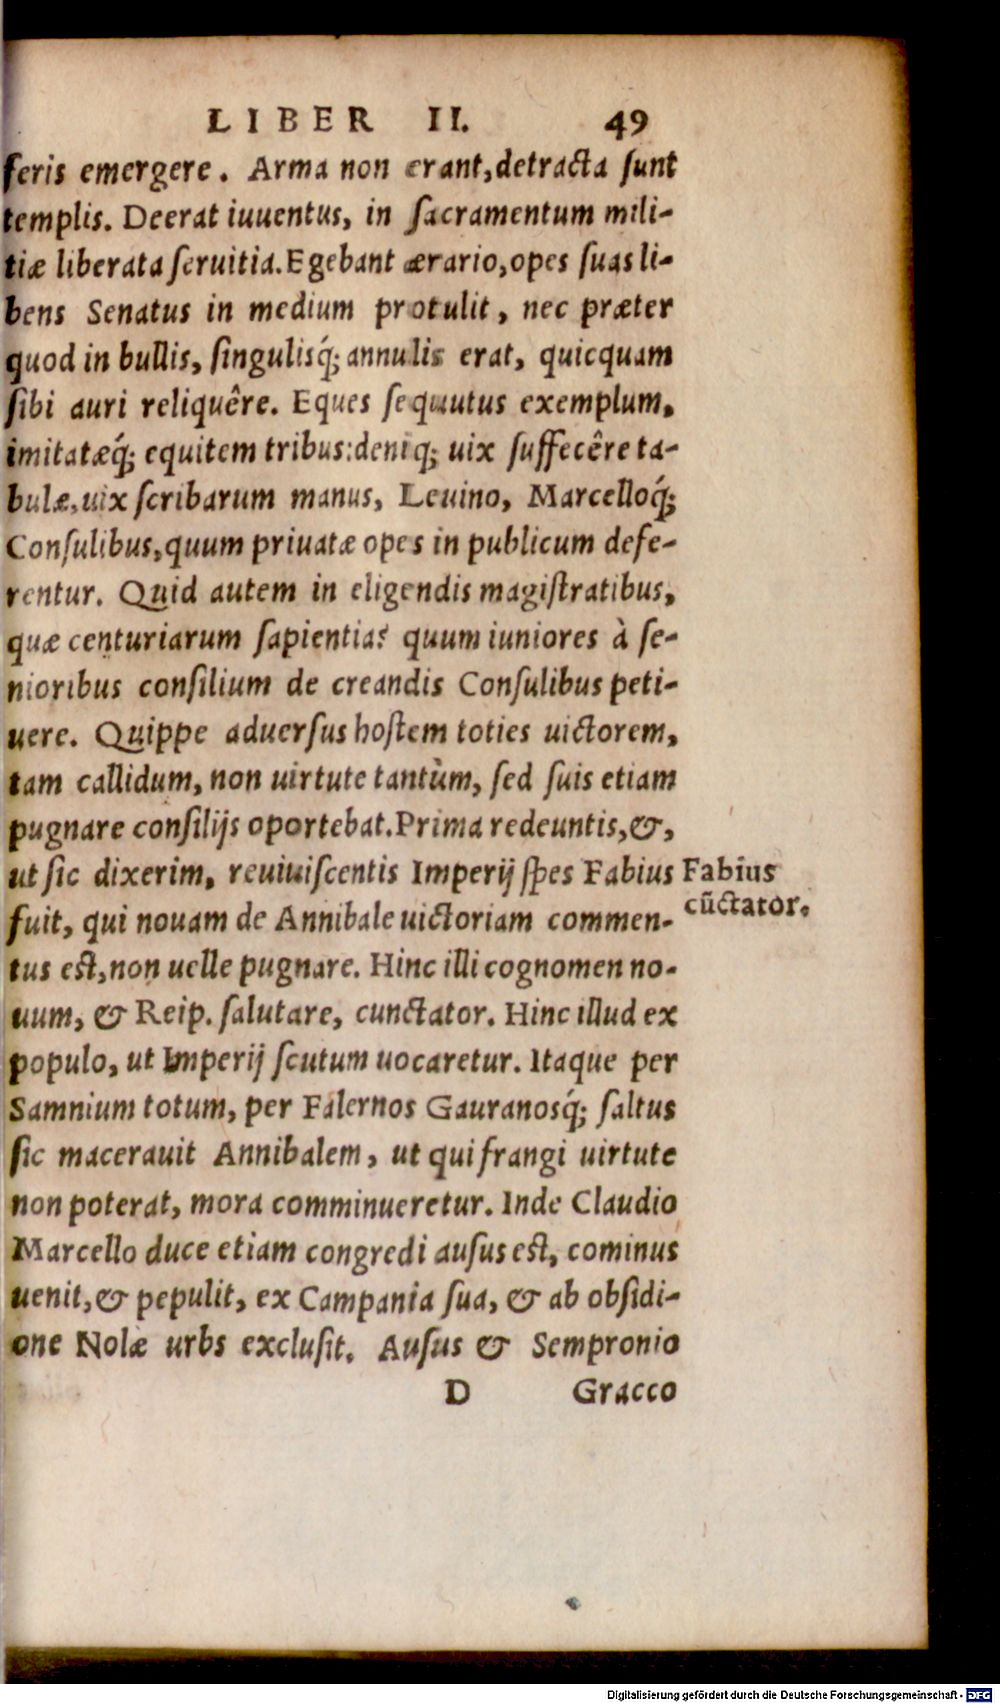 LIBER II. 49
feris emergere. Arma non erant, detracta sunt
templis. Deerat iuuentus, in sacramentum mili-
tiæ liberata seruitia. Egebant ærario, opes suas li-
bens Senatus in medium protulit, nec præter
quod in bullis, singulisq́; annulis erat, quicquam
sibi auri reliquêre. Eques sequutus exemplum,
imitatæq́; equitem tribus: deniq; uix suffecêre ta-
bulæ, uix scribarum manus, Leuino, Marcelloq́;
Consulibus, quum priuatæ opes in publicum defe-
rentur. Quid autem in eligendis magistratibus,
quæ centuriarum sapientia? quum iuniores à se-
nioribus consilium de creandis Consulibus peti-
uere. Quippe aduersus hostem toties uictorem,
tam callidum, non uirtute tantùm, sed suis etiam
pugnare consilijs oportebat. Prima redeuntis, &,
ut sic dixerim, reuiuiscentis Imperij spes Fabius
Fabius
cūctator.
fuit, qui nouam de Annibale uictoriam commen-
tus est, non uelle pugnare. Hinc illi cognomen no-
uum, & Reip. salutare, cunctator. Hinc illud ex
populo, ut Imperij scutum uocaretur. Itaque per
Samnium totum, per Falernos Gauranosq́; saltus
sic macerauit Annibalem, ut qui frangi uirtute
non poterat, mora comminueretur. Inde Claudio
Marcello duce etiam congredi ausus est, cominus
uenit, & pepulit, ex Campania sua, & ab obsidi-
one Nolæ urbs exclusit. Ausus & Sempronio
D Gracco
Digitalisierung gefördert durch die Deutsche Forschungsgemeinschaft - DFG